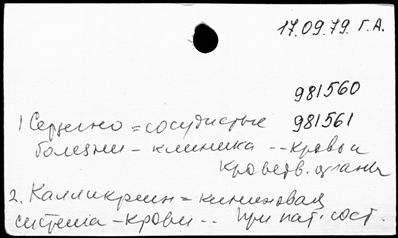 17.09.79. Г.А.
981560
1 Сердечно = сосудистые 981561
болезни - клиника -- Кровь и
кроветв. органы
2. Калликреин = кининовая
система - крови -- при пат. сост.